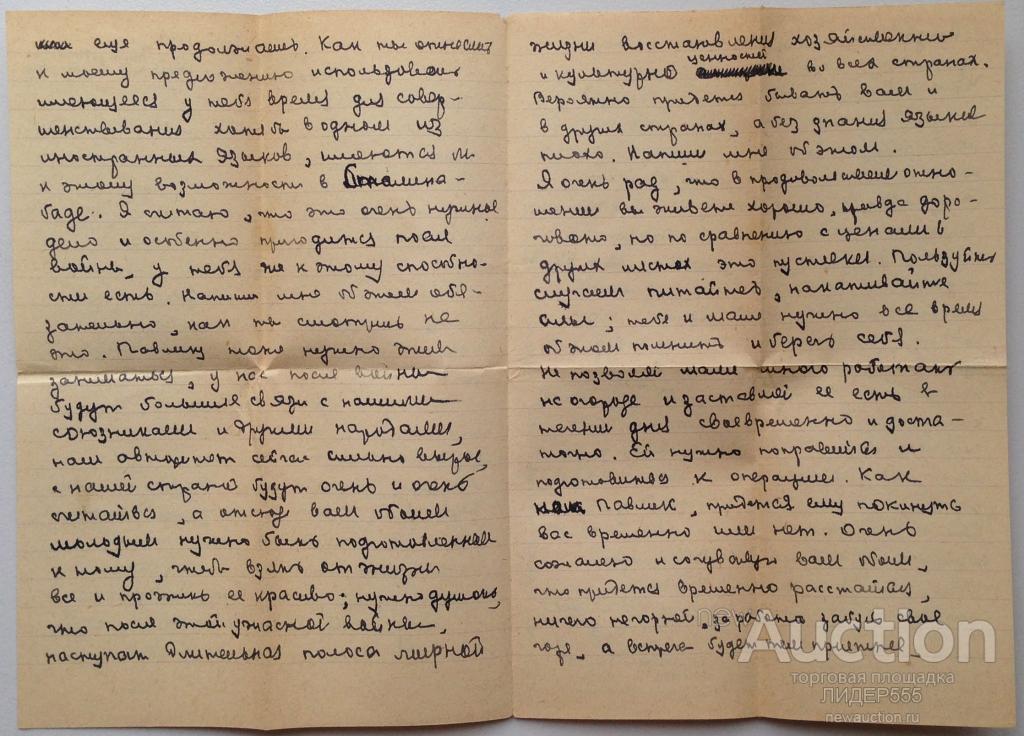 еще продолжаешь. Как ты отнесешься
к моему предложению использовать
имеющееся у тебя время для совер-
шенствования хотя бы в одном из
иностранных языков, имеются ли
к этому возможности в Сталина-
баде. Я считаю, что это очень нужное
дело и особенно пригодится после
войны, у тебя же к этому способно-
сти есть. Напиши мне об этом обя-
зательно, как ты смотришь на
это. Павлику тоже нужно этим
заниматься, у нас после войны
будут большие связи с нашими
союзниками и другими народами,
наш авторитет сейчас сильно вырос,
с нашей страной будут очень и очень
считаться, а отсюда вам обоим
молодым нужно быть подготовленным
к тому, чтобы взять от жизни
все и прожить ее красиво; нужно думать,
что после этой ужасной войны,
наступит длительная полоса мирной
жизни восстановления хозяйственных
и культурно ценностей во всех странах.
Вероятно придется бывать вам и
в других странах, а без знания языков
плохо. Напиши мне об этом.
Я очень рад, что в продовольственном отно-
шении вы живете хорошо, правда доро-
говато, но по сравнению с ценами в
других местах это пустяки. Пользуйтесь
случаем питайтесь, накапливайте
силы; тебе и маме нужно все время
об этом помнить и беречь себя.
Не позволяй маме много работать
на огороде и заставляй ее есть в
течении дня своевременно и доста-
точно. Ей нужно поправиться и
подготовиться к операции. Как
Павлик, придется ему покинуть
вас временно или нет. Очень
сожалею и сочувствую вам обоим,
что придется временно расстаться,
ничего не горюй, за работой забудь свое
горе, а встреча будет тем приятнее.
newAuction
торговая площадка
ЛИДЕР555
newauction.ru